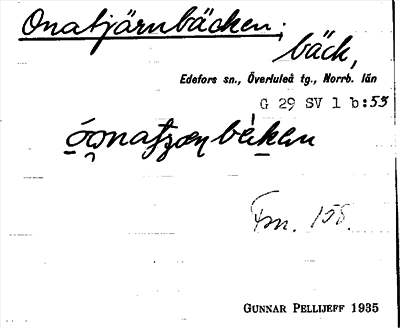 Onatjärnbäcken;
bäck,
Edefors sn., Överluleå tg., Norrb. län
G 29 SV 1 b:53
Fm. 158.
GUNNAR PELLIJEFF 1935